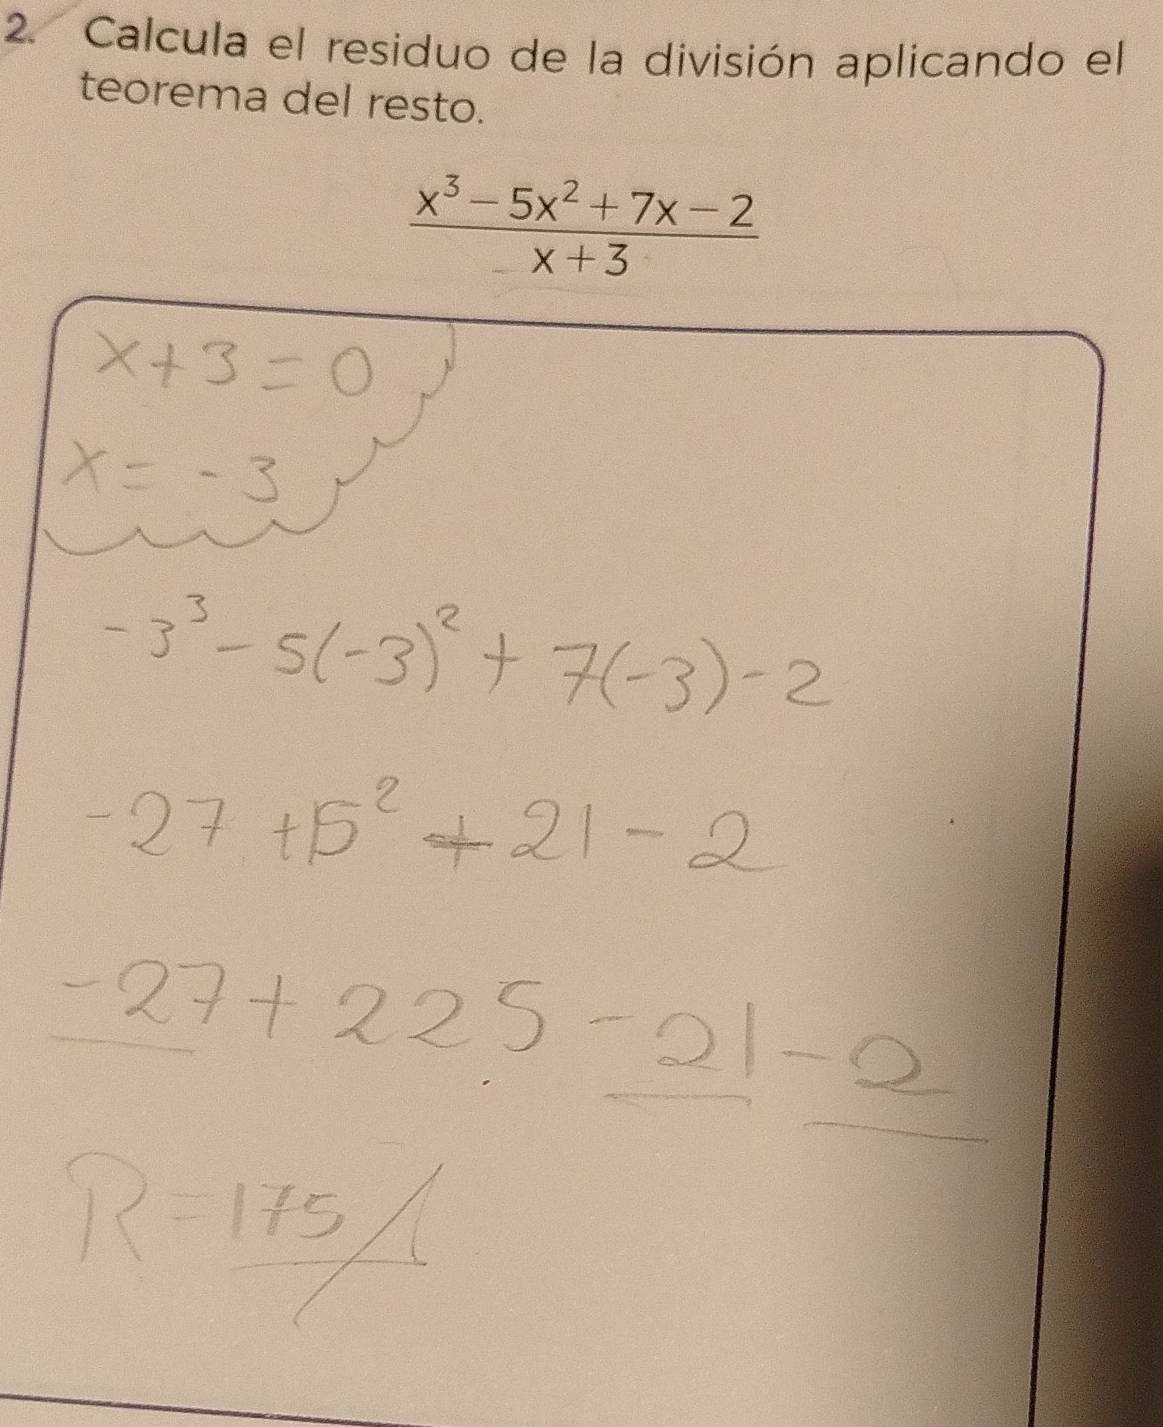 2. Calcula el residuo de la división aplicando el
teorema del resto.
x³ - 5x² + 7x - 2
x + 3
x + 3 = 0
x = -3
-3³ - 5(-3)² + 7(-3) - 2
-27 + 15² + 21 - 2
-27 + 225 - 21 - 2
R = 175